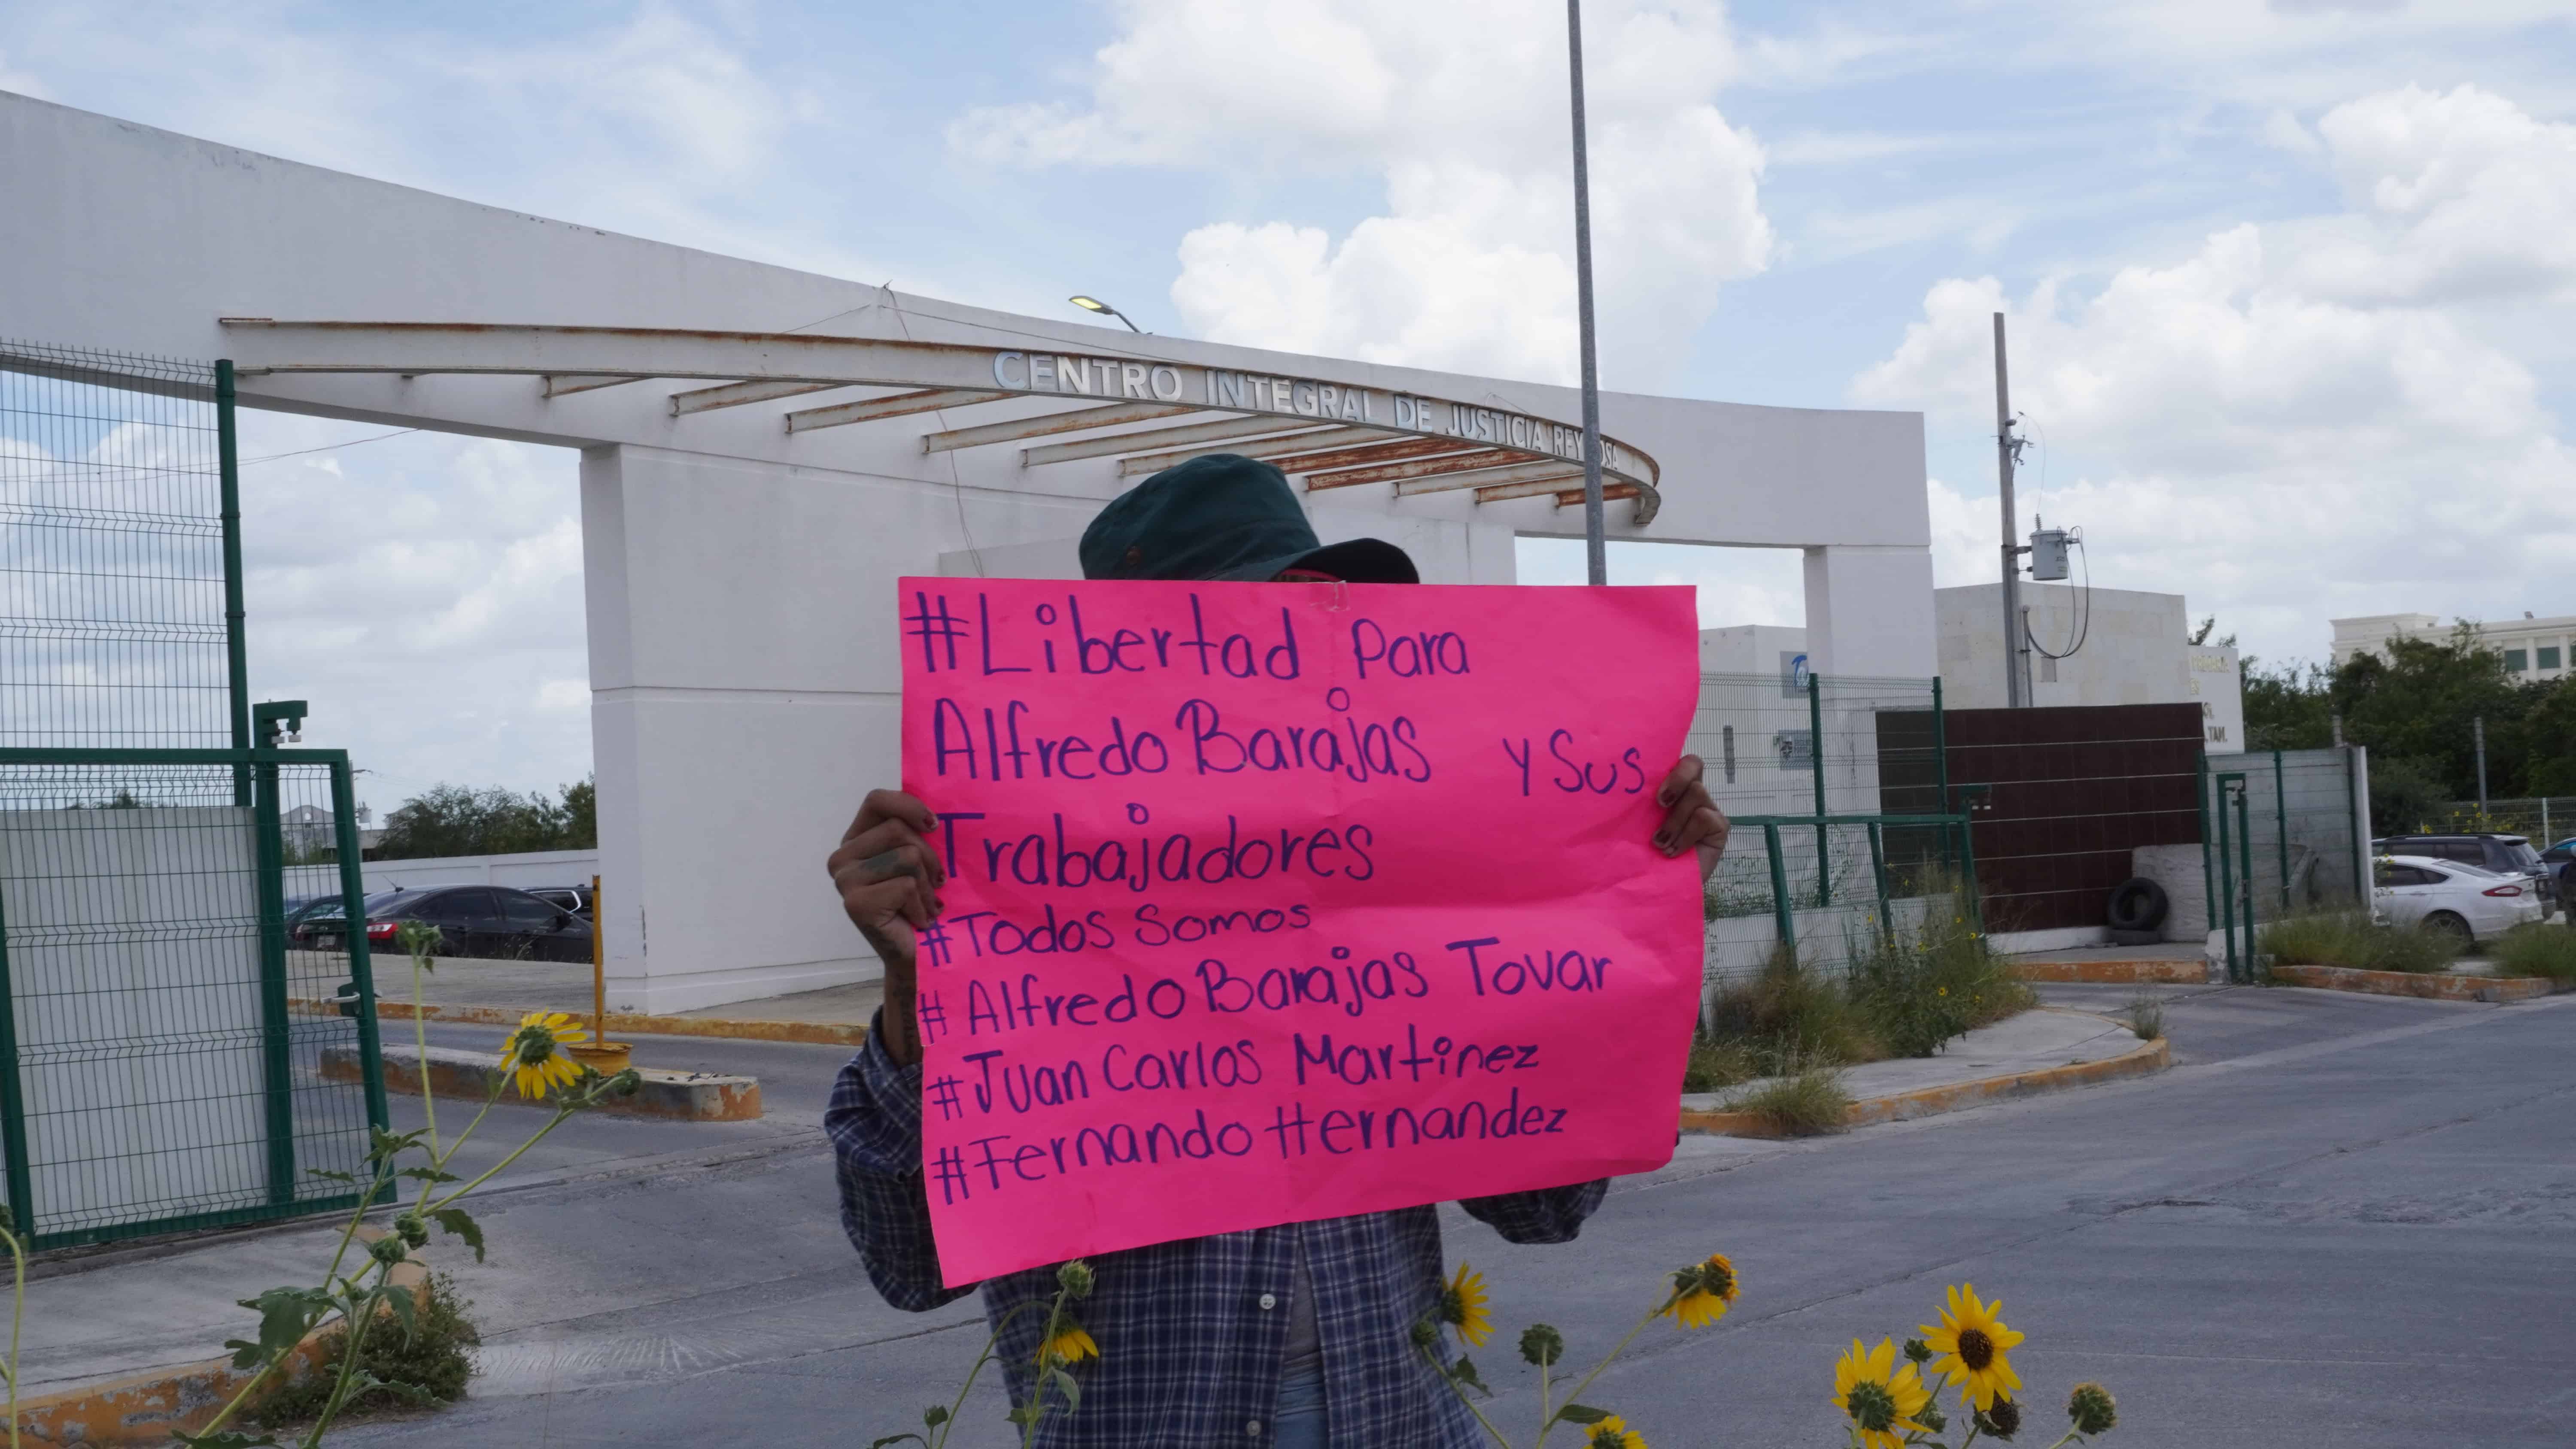 CENTRO INTEGRAL DE JUSTICIA REYNOSA
#Libertad para
Alfredo Barajas y Sus
Trabajadores
#Todos Somos
#Alfredo Barajas Tovar
#Juan Carlos Martinez
#Fernando Hernandez
TAM.